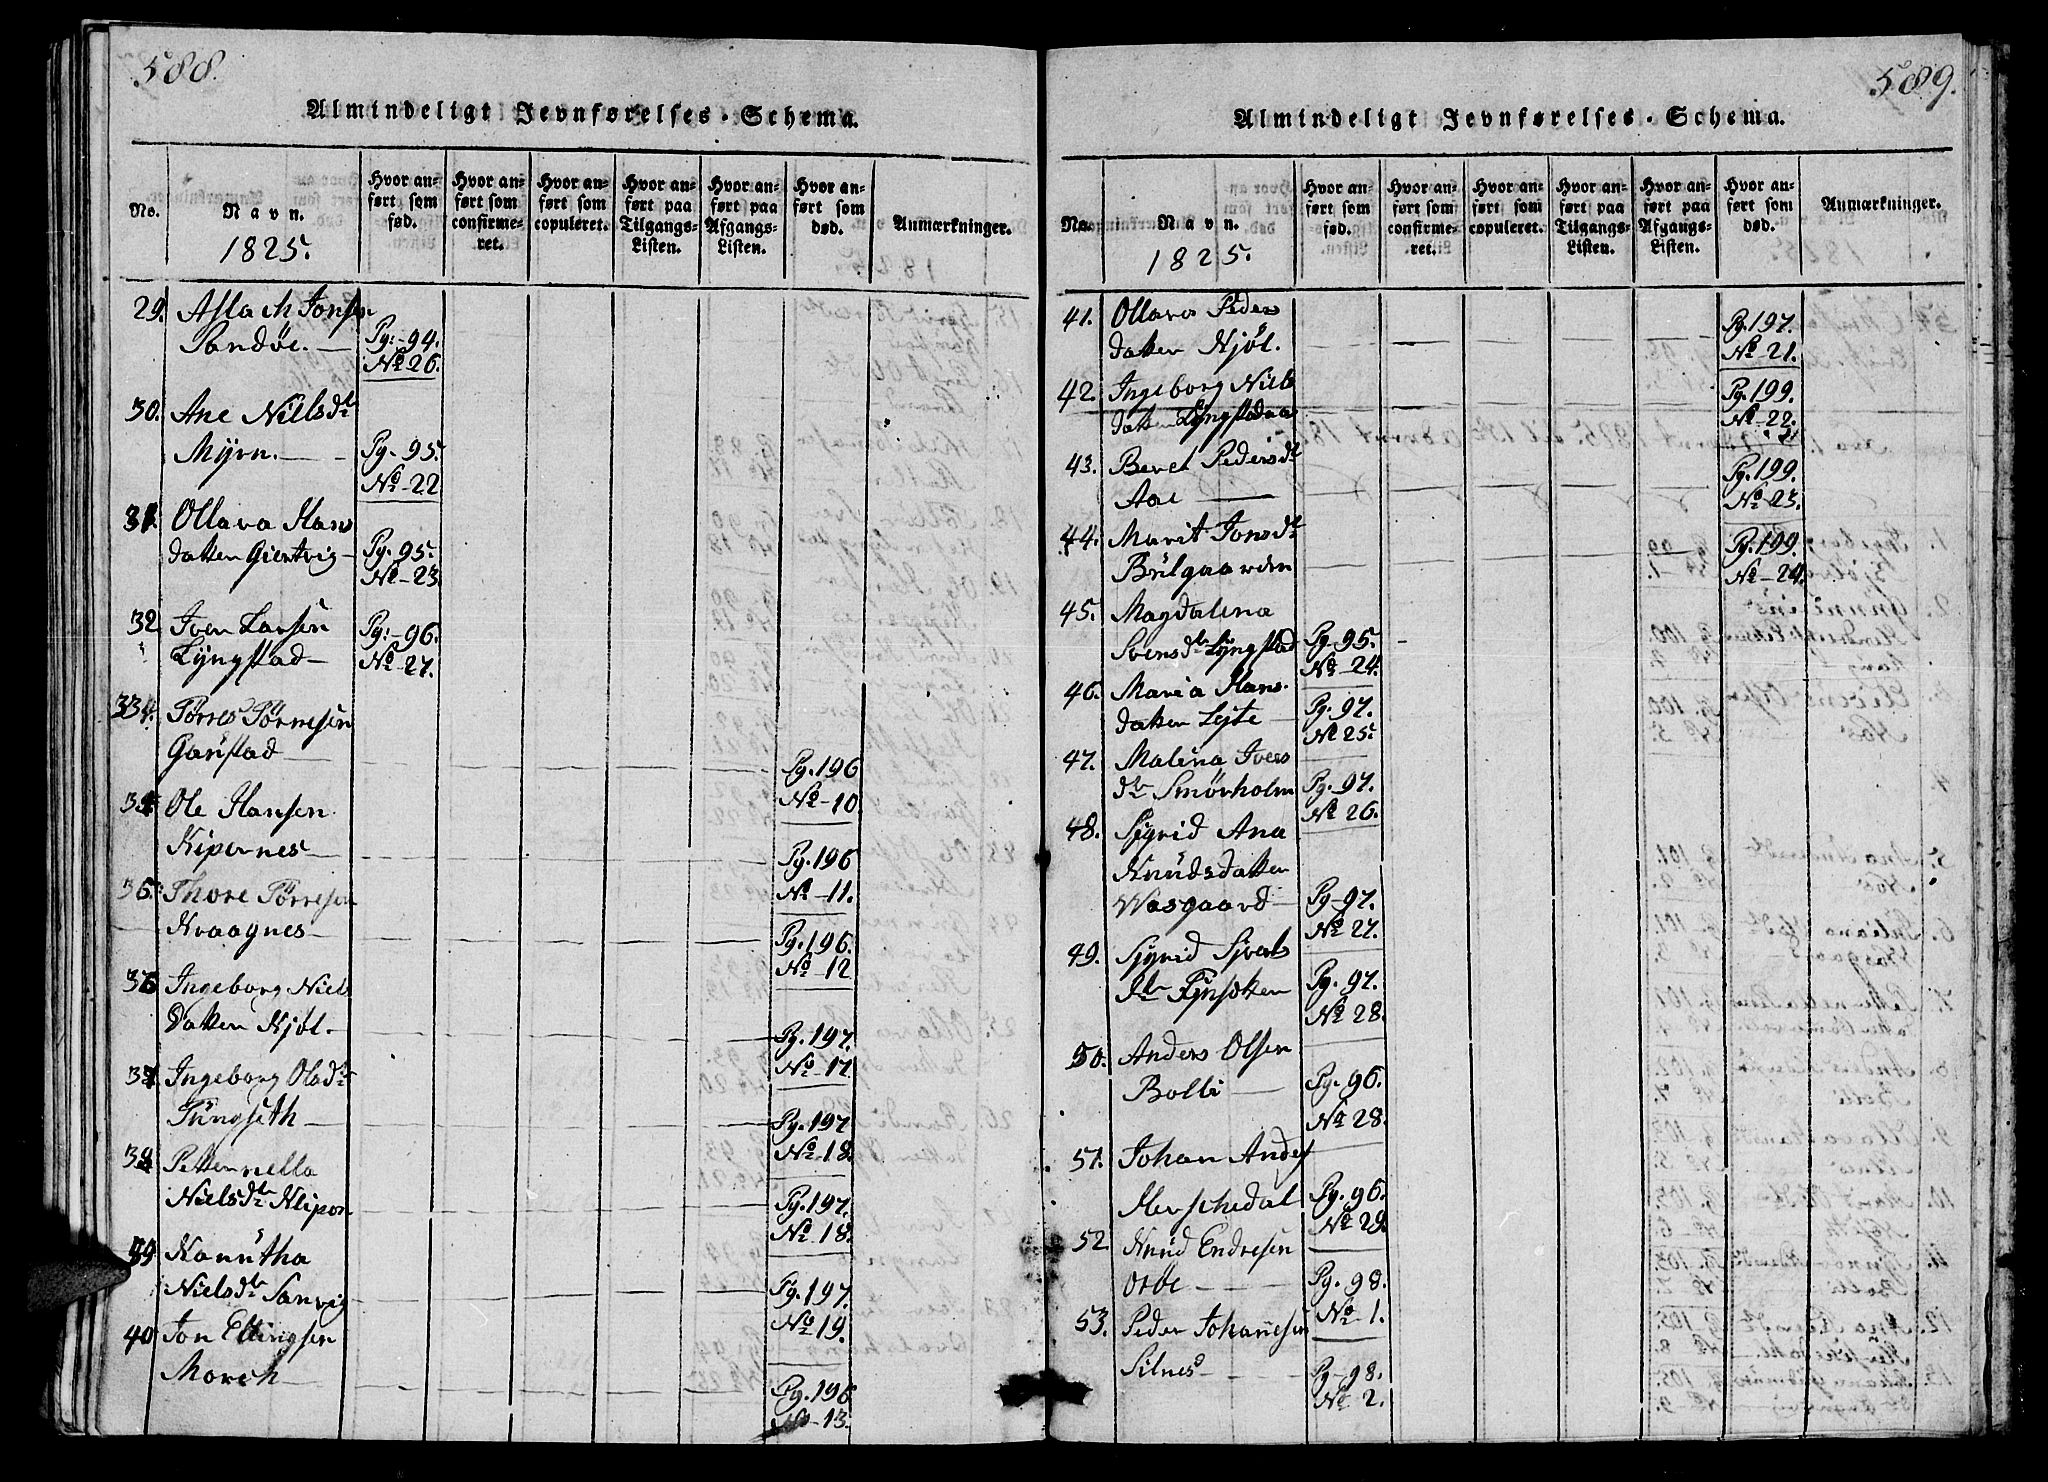 588.
Almindeligt Jevnførelses-Schema.
No.
Navn.
1825.
Hvor anført som fød.
Hvor anført som confirmeret.
Hvor anført som copuleret.
Hvor anført paa Tilgangs-Listen.
Hvor anført paa Afgangs-Listen.
Hvor anført som død.
Anmærkninger.
29. Aslach Jonsen
Sandøe. Pg:-94.
No 26.
30. Ane Nielsdtr
Myrn. Pg-95.
No-22
31. Ollava Hans
datter Giertvig Pg.95.
No-23.
32. Iver Larsen Pg:-96.
Lyngstad No-27.
33 Torres Torresen
Ganstad Pg.196
No-10.
Ole Hansen
Kipernes Pg.196
No-11.
Thore Torresen
Kraagnes Pg.196.
No-12
36 Ingeborg Niels
Datter Kjøl. Pg.197.
No-17.
37 Ingeborg Olsdtr
Tüngseth Pg.197
No-18.
38 Petternella
Nielsdtr Klipen Pg.197.
No 18.
39 Kanutha
Nielsdtr Sanvig Pg.197.
No 19.
40 Jon Ellingsen
March Pg.196
No-13.
589.
Almindeligt Jevnførelses-Schema.
No.
Navn.
1825.
Hvor anført som fød.
Hvor anført som confirmeret.
Hvor anført som copuleret.
Hvor anført paa Tilgangs-Listen.
Hvor anført paa Afgangs-Listen.
Hvor anført som død.
Anmærkninger.
41. Ollava Peders Pg.197.
datter Kjøl. No-21.
42. Ingeborg Niels Pg.199.
datter Lyngstadaas No-22.
43. Beret Pedersdtr Pg.199.
Aae No-23.
44. Marit Jonsdtr Pg.199.
Bülgaarden No-24.
45. Magdalena
Svensdtr Lyngstad Pg.95.
No-24.
46. Maria Hans Pg.97.
datter Lejte No 25.
47. Malena Ivers
dtr Smørholm Pg.97.
No 26.
48. Sigrid Ana
Knüdsdatter
Wasgaard Pg-97.
No 27.
49. Sigrid Sjverts
dtr Pg.97.
No 28.
50. Anders Olsen
Bolli Pg.96.
No 28.
51. Johan Anders
Herschedal Pg.96.
No 29.
52. Knüd Endresen
Otøe Pg.98.
No 1.
53. Peder Johannesen
Silnes Pg-98.
No 2.